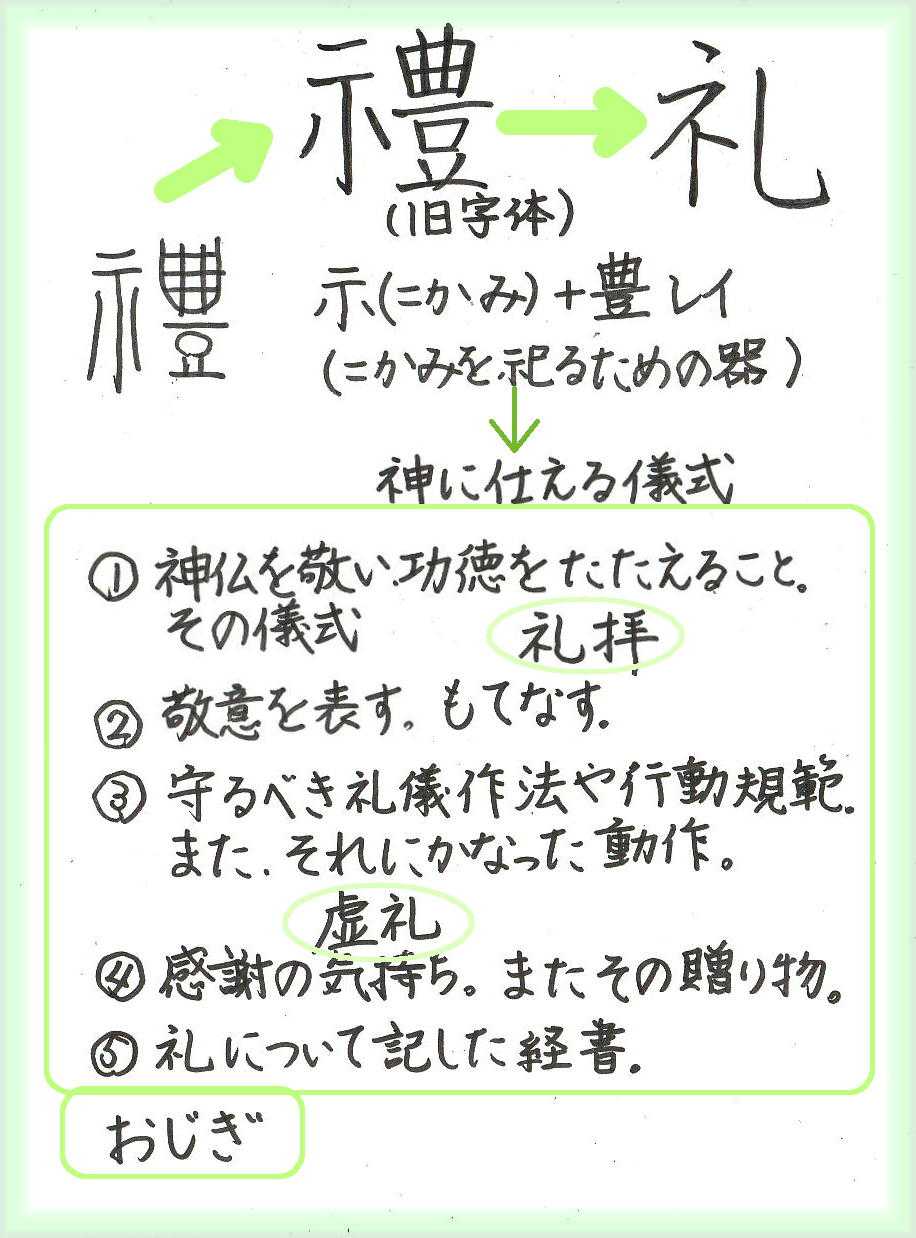 禮 → 礼
(旧字体)
禮
示(=かみ)+豊 レイ
(=かみを祀るための器)
神に仕える儀式
① 神仏を敬い、功徳をたたえること。
その儀式
礼拝
② 敬意を表す。もてなす。
③ 守るべき礼儀作法や行動規範.
また、それにかなった動作。
虚礼
④ 感謝の気持ち。またその贈り物。
⑤ 礼について記した経書.
おじぎ